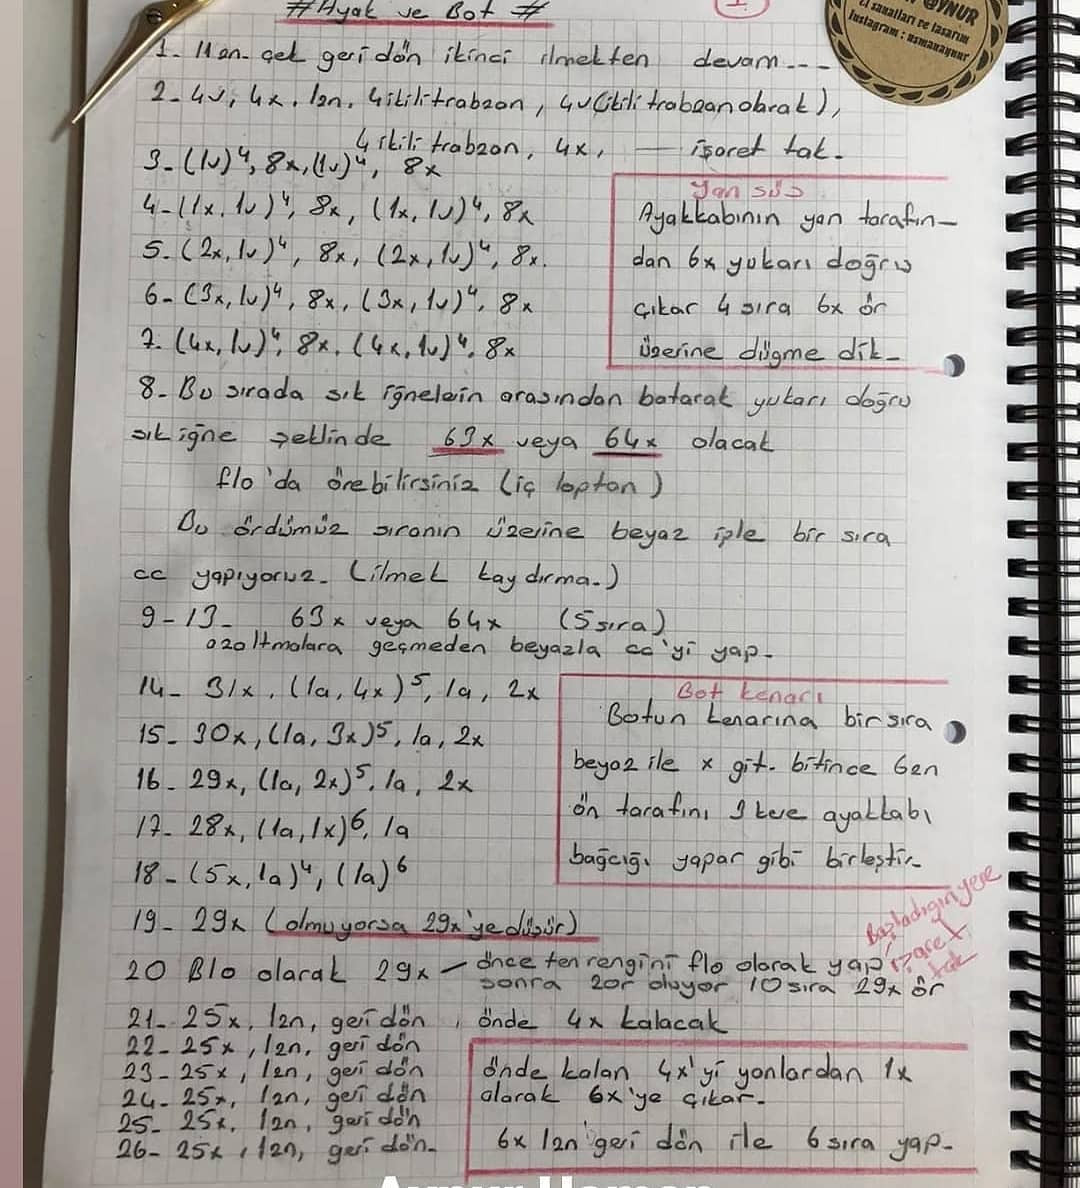 #Ayak ve Bot #
@YNUR
El sanatları ve tasarım
Instagram : usmanaynur
1- 11 zn. çek geri dön ikinci ilmekten devam...-
2- 4v, 4x, 1zn, 4ikilitrabzan, 4v(ikili trabzan olarak),
4 ikili trabzan, 4x, — işaret tak.
3- (1v)⁴, 8x, (1v)⁴, 8x
4- (1x, 1v)⁴, 8x, (1x, 1v)⁴, 8x
5. (2x, 1v)⁴, 8x, (2x, 1v)⁴, 8x.
6- (3x, 1v)⁴, 8x, (3x, 1v)⁴, 8x
7. (4x, 1v)⁴, 8x, (4x, 1v)⁴, 8x
Yan süs
Ayakkabının yan tarafın-
dan 6x yukarı doğru
çıkar 4 sıra 6x ör
üzerine düğme dik-
8- Bu sırada sık iğnelerin arasından batarak yukarı doğru
sık iğne şeklinde 63x veya 64x olacak
flo'da örebilirsiniz (iç loptan)
Bu ördümüz sıranın üzerine beyaz iple bir sıra
cc yapıyoruz. (ilmek kaydırma.)
9-13- 63x veya 64x (5 sıra)
azaltmalara geçmeden beyazla cc'yi yap-
14- 31x, (1a, 4x)⁵, 1a, 2x
15- 30x, (1a, 3x)⁵, 1a, 2x
16- 29x, (1a, 2x)⁵, 1a, 2x
17- 28x, (1a, 1x)⁶, 1a
18- (5x, 1a)⁴, (1a)⁶
Bot kenarı
Botun kenarına bir sıra
beyaz ile x git. bitince 6zn
ön tarafını 3 kere ayakkabı
bağcığı yapar gibi birleştir-
19- 29x (olmuyorsa 29x'ye düşür)
Başladığın yere
işaret
tak
20 Blo olarak 29x — önce ten rengini flo olarak yap
sonra zor oluyor 10 sıra 29x ör
21- 25x, 1zn, geri dön, önde 4x kalacak
22- 25x, 1zn, geri dön
23- 25x, 1zn, geri dön
24- 25x, 1zn, geri dön
25- 25x, 1zn, geri dön
26- 25x, 1zn, geri dön-
önde kalan 4x'yi yanlardan 1x
alarak 6x'ye çıkar-
6x 1zn geri dön ile 6 sıra yap-